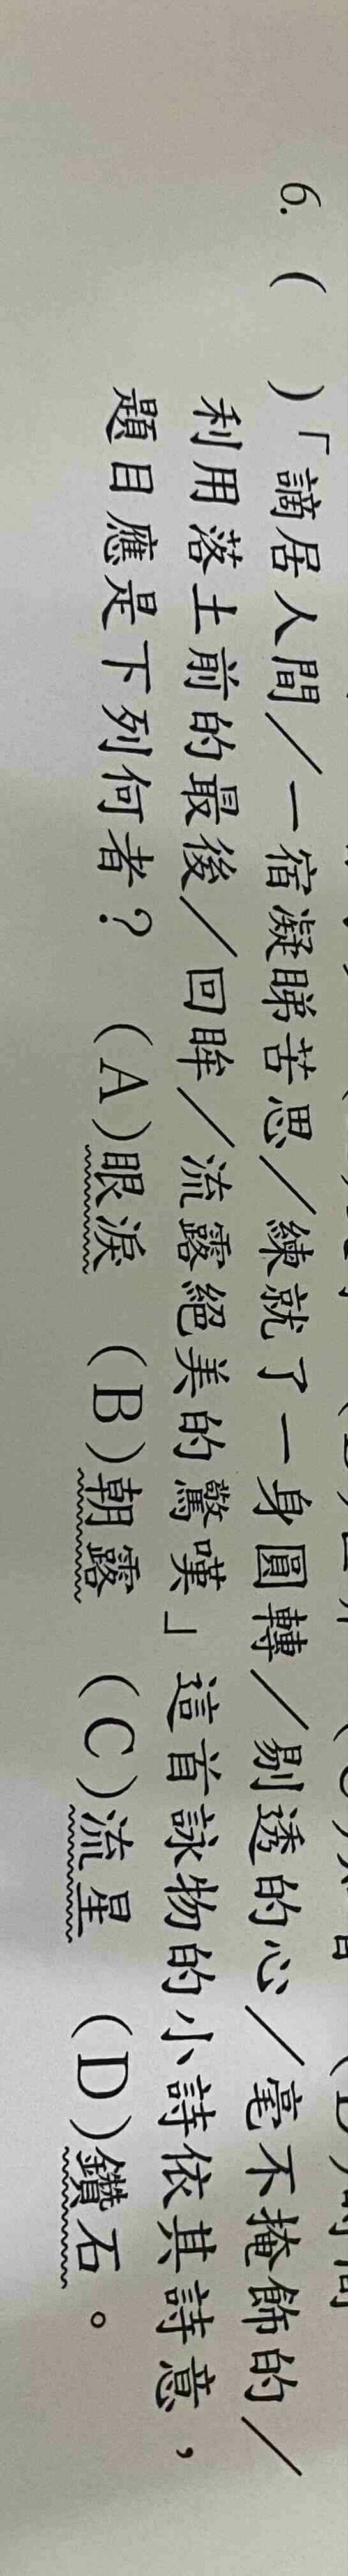 6. (　)「謫居人間／一宿凝睇苦思／練就了一身圓轉／剔透的心／毫不掩飾的／
利用落土前的最後／回眸／流露絕美的驚嘆」這首詠物的小詩依其詩意，
題目應是下列何者？　(A)眼淚　(B)朝露　(C)流星　(D)鑽石。